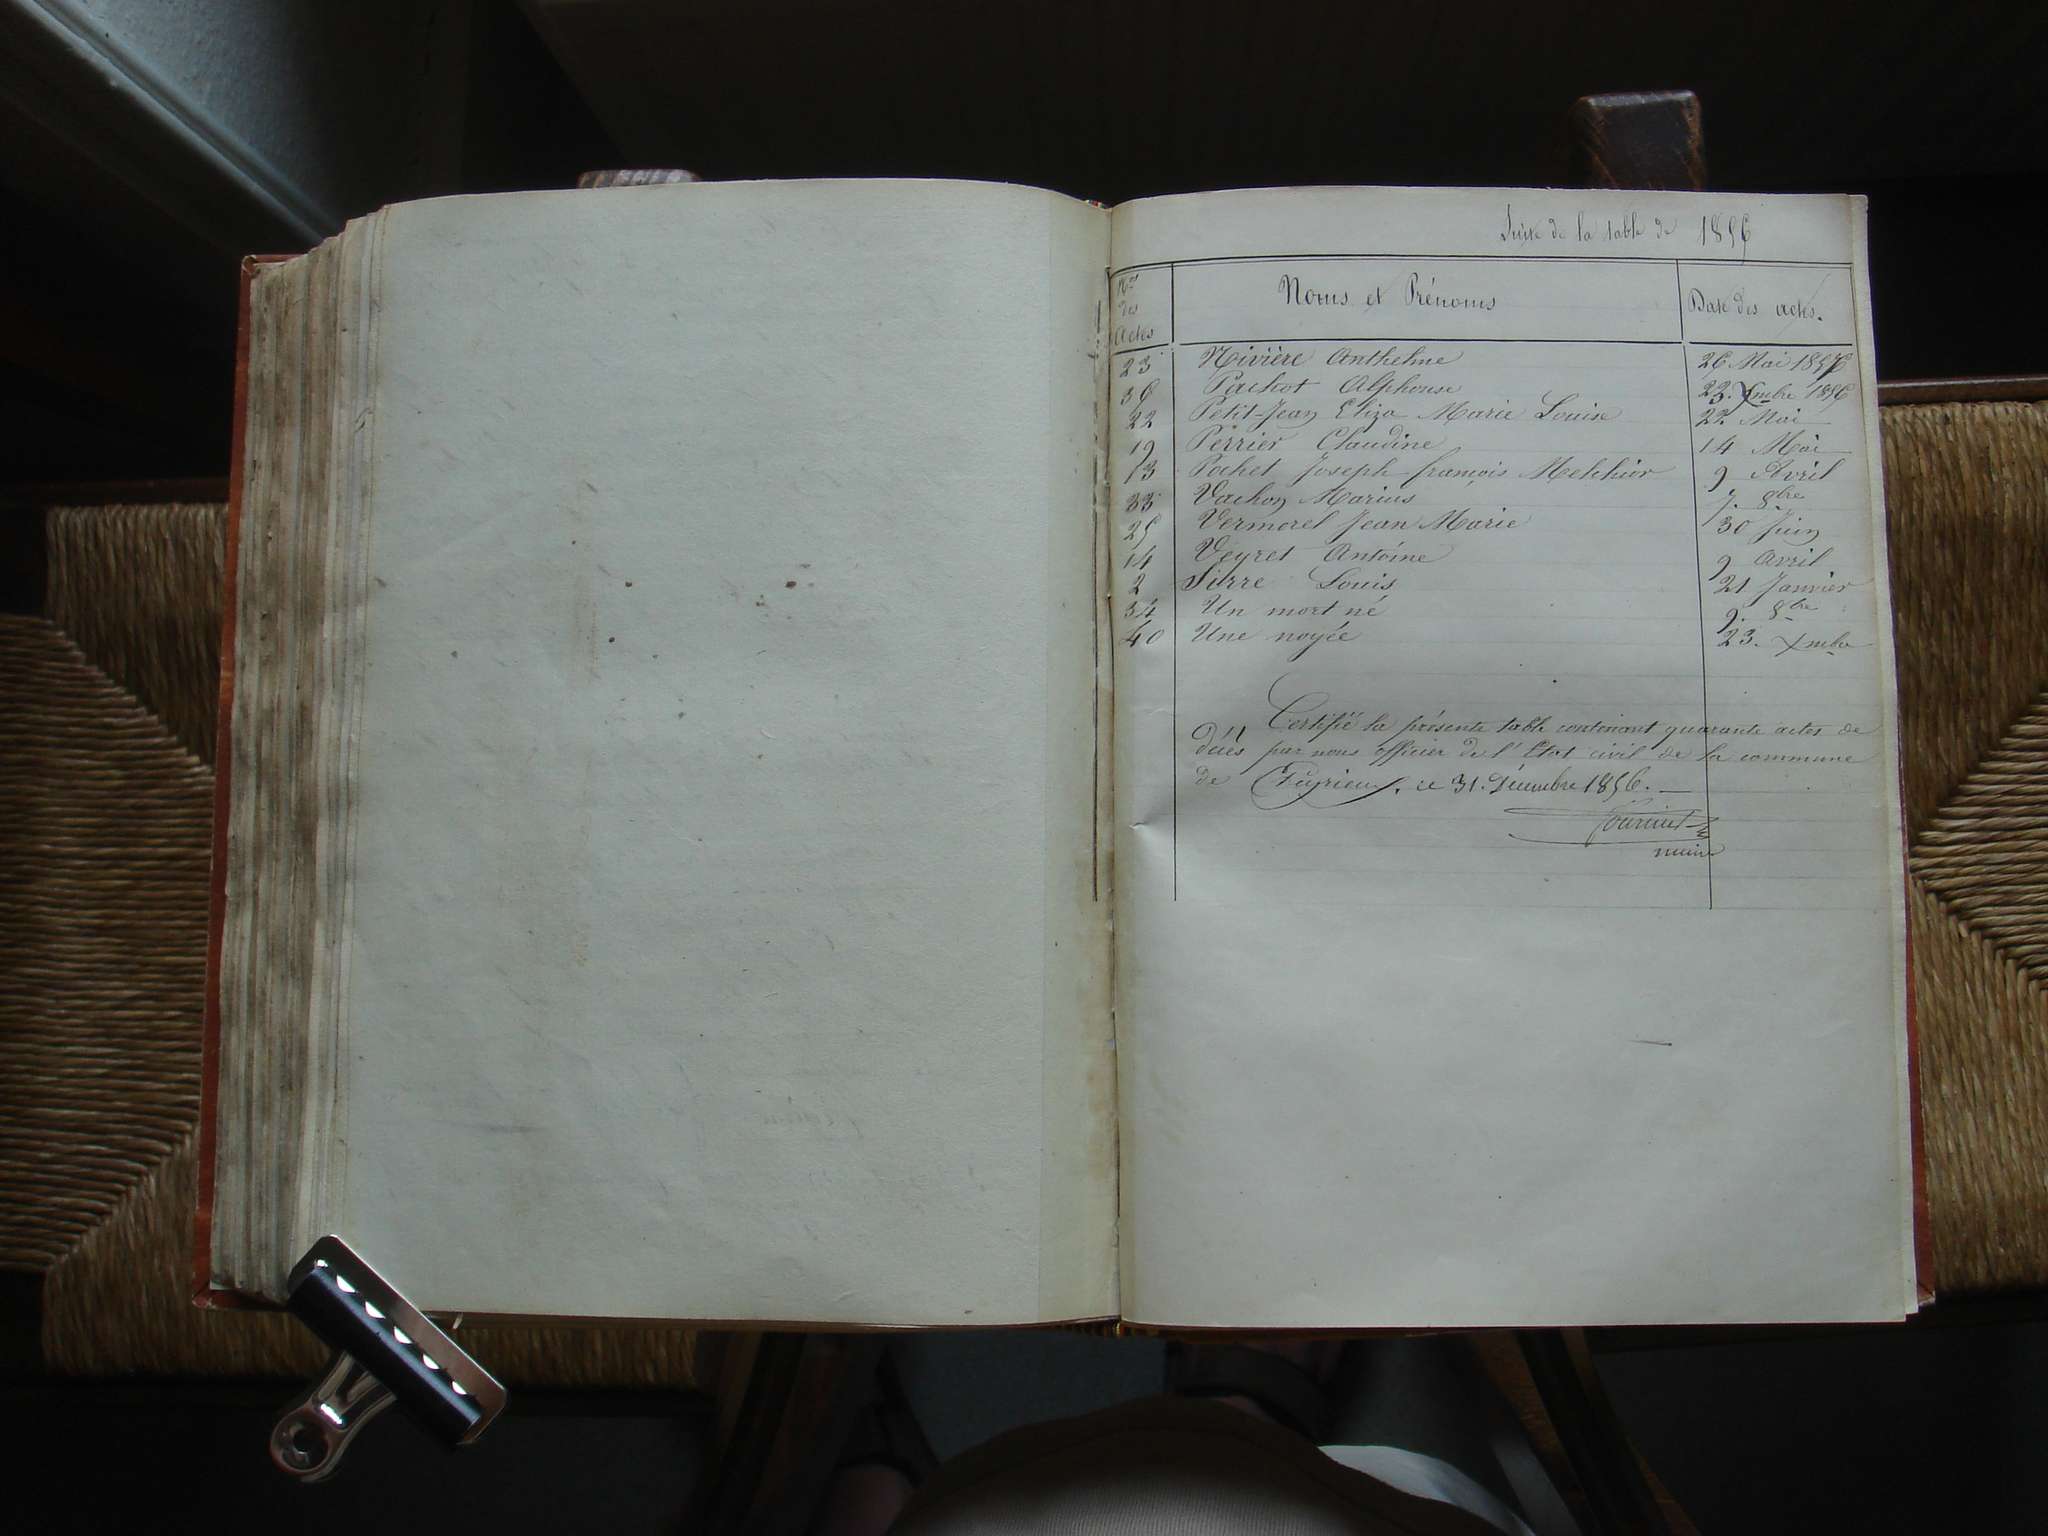 Suite de la table de 1856
Nos des actes Noms et Prénoms Date des actes.
23 Rivière Anthelme 26 Mai 1856
39 Pachot Alphonse 23. Xmbre 1856
22 Petit-Jean Eliza Marie Louise 22. Mai
19 Perrier Claudine 14 Mai
13 Pachet Joseph françois Melchior 9 Avril
33 Vachon Marius 7. 8bre
25 Vermorel Jean Marie 30 Juin
14 Veyret Antoine 9 Avril
2 Louis 21 Janvier
34 Un mort né 9. 8bre
40 Une noyée 23. Xmbre
Certifié la présente table contenant quarante actes de
décès par nous officier de l'Etat civil de la commune
de Feyrieu, ce 31. Décembre 1856.
maire